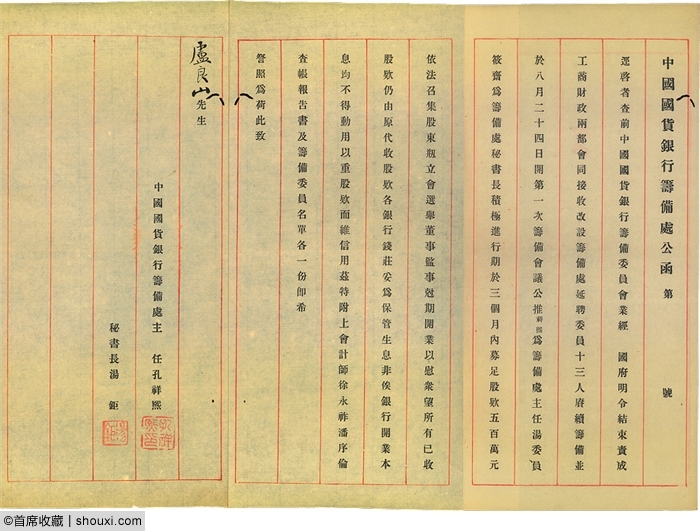 中國國貨銀行籌備處公函 第 號
逕啓者查前中國國貨銀行籌備委員會業經 國府明令結束責成
工商財政兩部會同接收改設籌備處延聘委員十三人賡續籌備並
於八月二十四日開第一次籌備會議公推祥熙爲籌備處主任湯委員
筱齋爲籌備處秘書長積極進行期於三個月內募足股欵五百萬元
依法召集股東剏立會選舉董事監事尅期開業以慰衆望所有已收
股欵仍由原代收股欵各銀行錢莊妥爲保管生息非俟銀行開業本
息均不得動用以重股欵而維信用茲特附上會計師徐永祚潘序倫
查帳報告書及籌備委員名單各一份卽希
詧照爲荷此致
盧良山先生
中國國貨銀行籌備處主 任孔祥熙
秘書長湯 鉅
@首席收藏 | shouxi.com